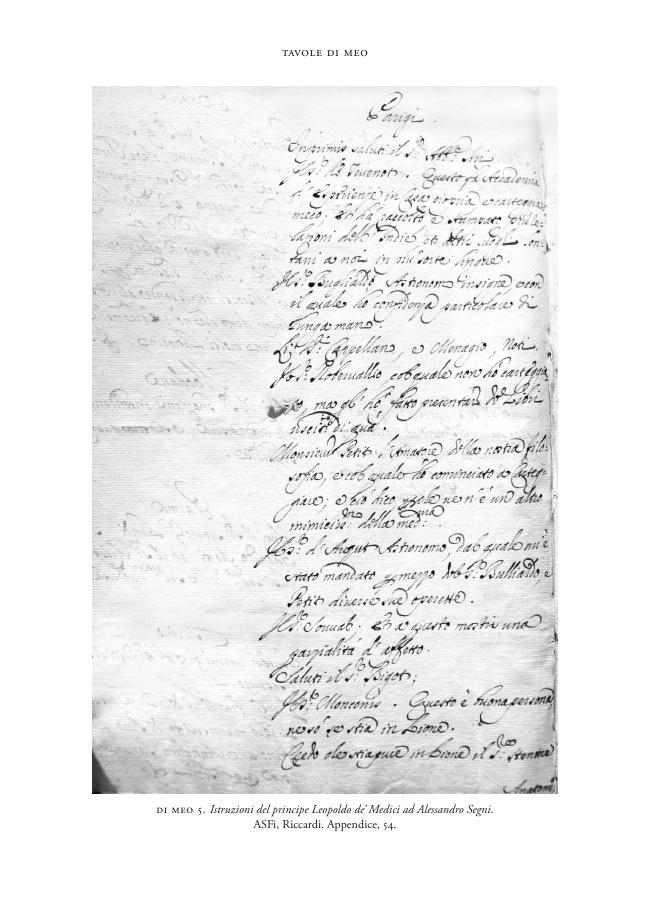 TAVOLE DI MEO
Parigi.
Inprimis saluti il s.r
Il s.r de Tevenot. Questo fà Accademia
d'Esperienze in casa propria e carteggia
meco; Et ha raccolto e stampato più re-
lazioni dell'Indie et altri luoghi lon-
tani a noi in più sorte lingue.
Il s.r Bugliàldo Astronomo insigne e con
il quale hò confidenza particolare di
lunga mano.
Li s.ri Cappellano, e Menagio, Noti.
Il s.r Robervallio, col quale non hò carteggia-
to, ma gl'hò fatto presentare de Libri
usciti di qua.
Monsieur Petit Amatore della nostra filo-
sofia, e col quale hò cominciato a carteg-
giare; e ciò dico perche ve n'è un altro
inimiciss.mo della med.ma
Il s.r d'Auzut Astronomo, dal quale mi è
stato mandato per mezzo del s.r Bullialdo, e
Petit diverse sue operette.
Il s.r Et a questo mostri una
parzialità d'affetto.
Saluti il s.r Bigot;
Il s.r Monconis. Questo è buona persona
ne sò se stia in Lione.
Credo che stia pure in Lione il s.r Stenone
Anatom:
DI MEO 5. Istruzioni del principe Leopoldo de' Medici ad Alessandro Segni.
ASFi, Riccardi. Appendice, 54.